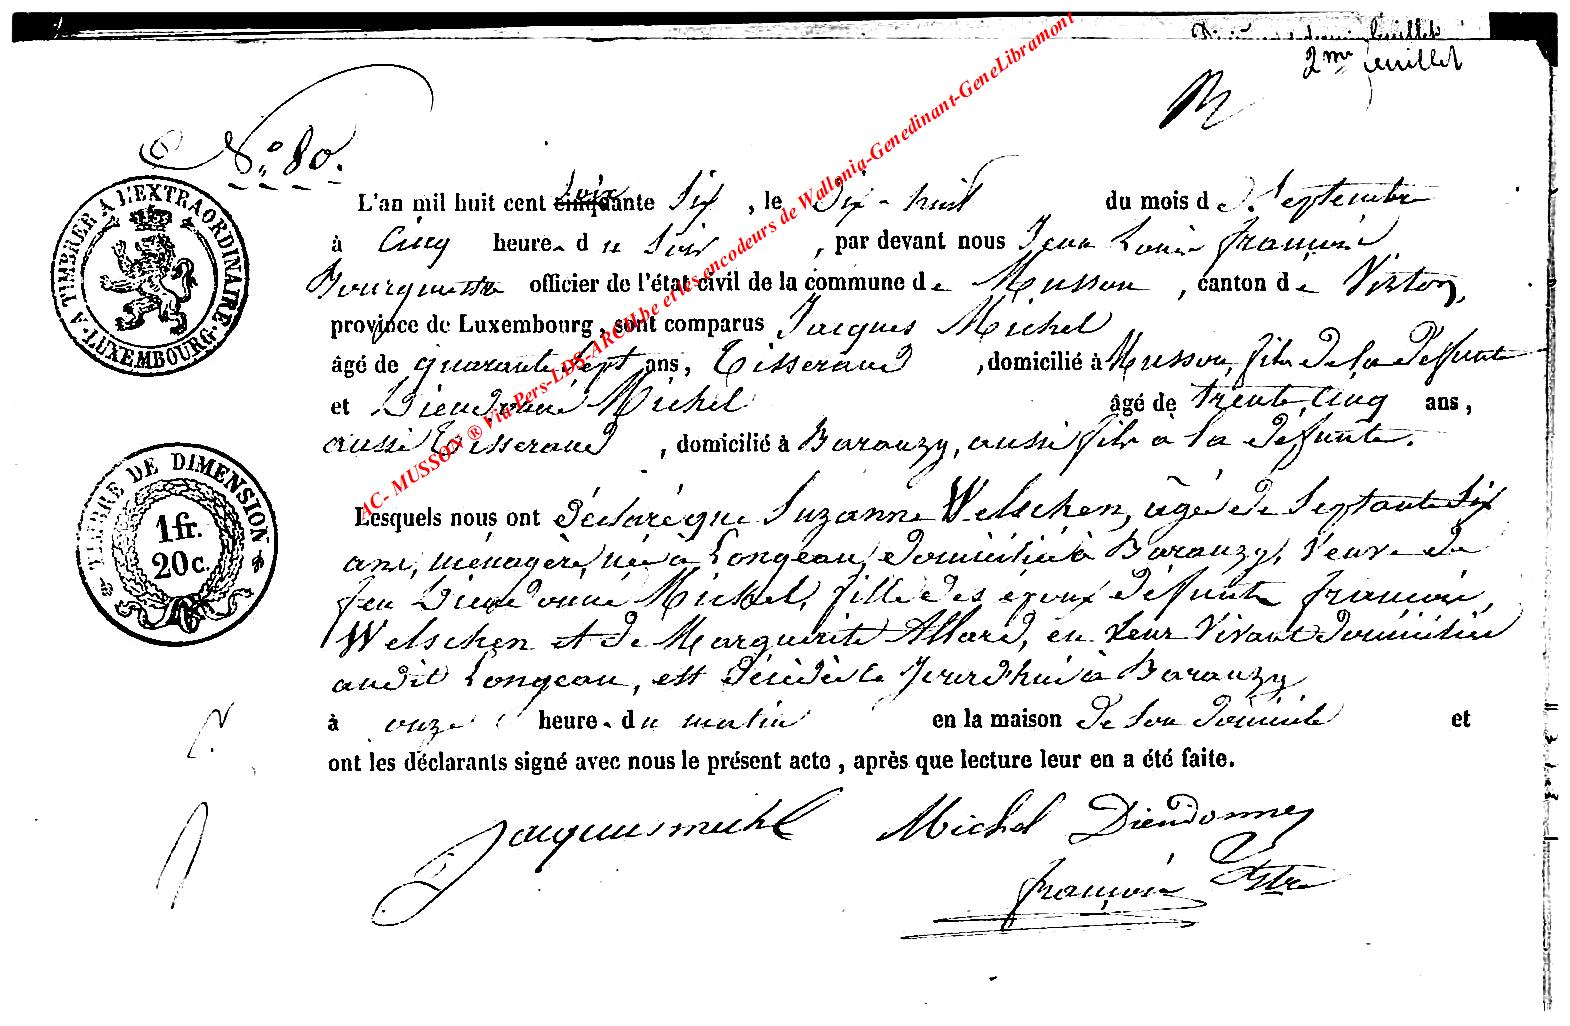 2me feuillet
No 80.
A TIMBRER A L'EXTRAORDINAIRE
LUXEMBOURG
L'an mil huit cent cinquante soix Six, le Dix-huit du mois de Septembre
à Cinq heure. du Soir, par devant nous Jean Louis françois
officier de l'état civil de la commune de Musson, canton de Virton,
province de Luxembourg, sont comparus Jacques Michel
âgé de quarante Sept ans, Tisserand, domicilié à Musson, fils de la défunte
et Dieudonné Michel âgé de trente cinq ans,
aussi Tisserand, domicilié à Baranzy, aussi fils à la défunte.
TIMBRE DE DIMENSION
1 fr.
20 c.
Lesquels nous ont déclaré que Suzanne Welschen, âgée de Septante Six
ans, ménagère, née à Longeau, domiciliée à Baranzy, Veuve de
feu Dieudonné Michel, fille des époux défunts françois
Welschen et de Marguerite Allard, en leur vivant domiciliés
audit Longeau, est décédée ce Jourd'hui à Baranzy
à onze heure. du matin en la maison de son domicile et
ont les déclarants signé avec nous le présent acte, après que lecture leur en a été faite.
Jacques michel Michel Dieudonnez
françois
AC- MUSSON ® Via Pers-LDS-ARCH.be et les encodeurs de Wallonia-Genedinant-GeneLibramont